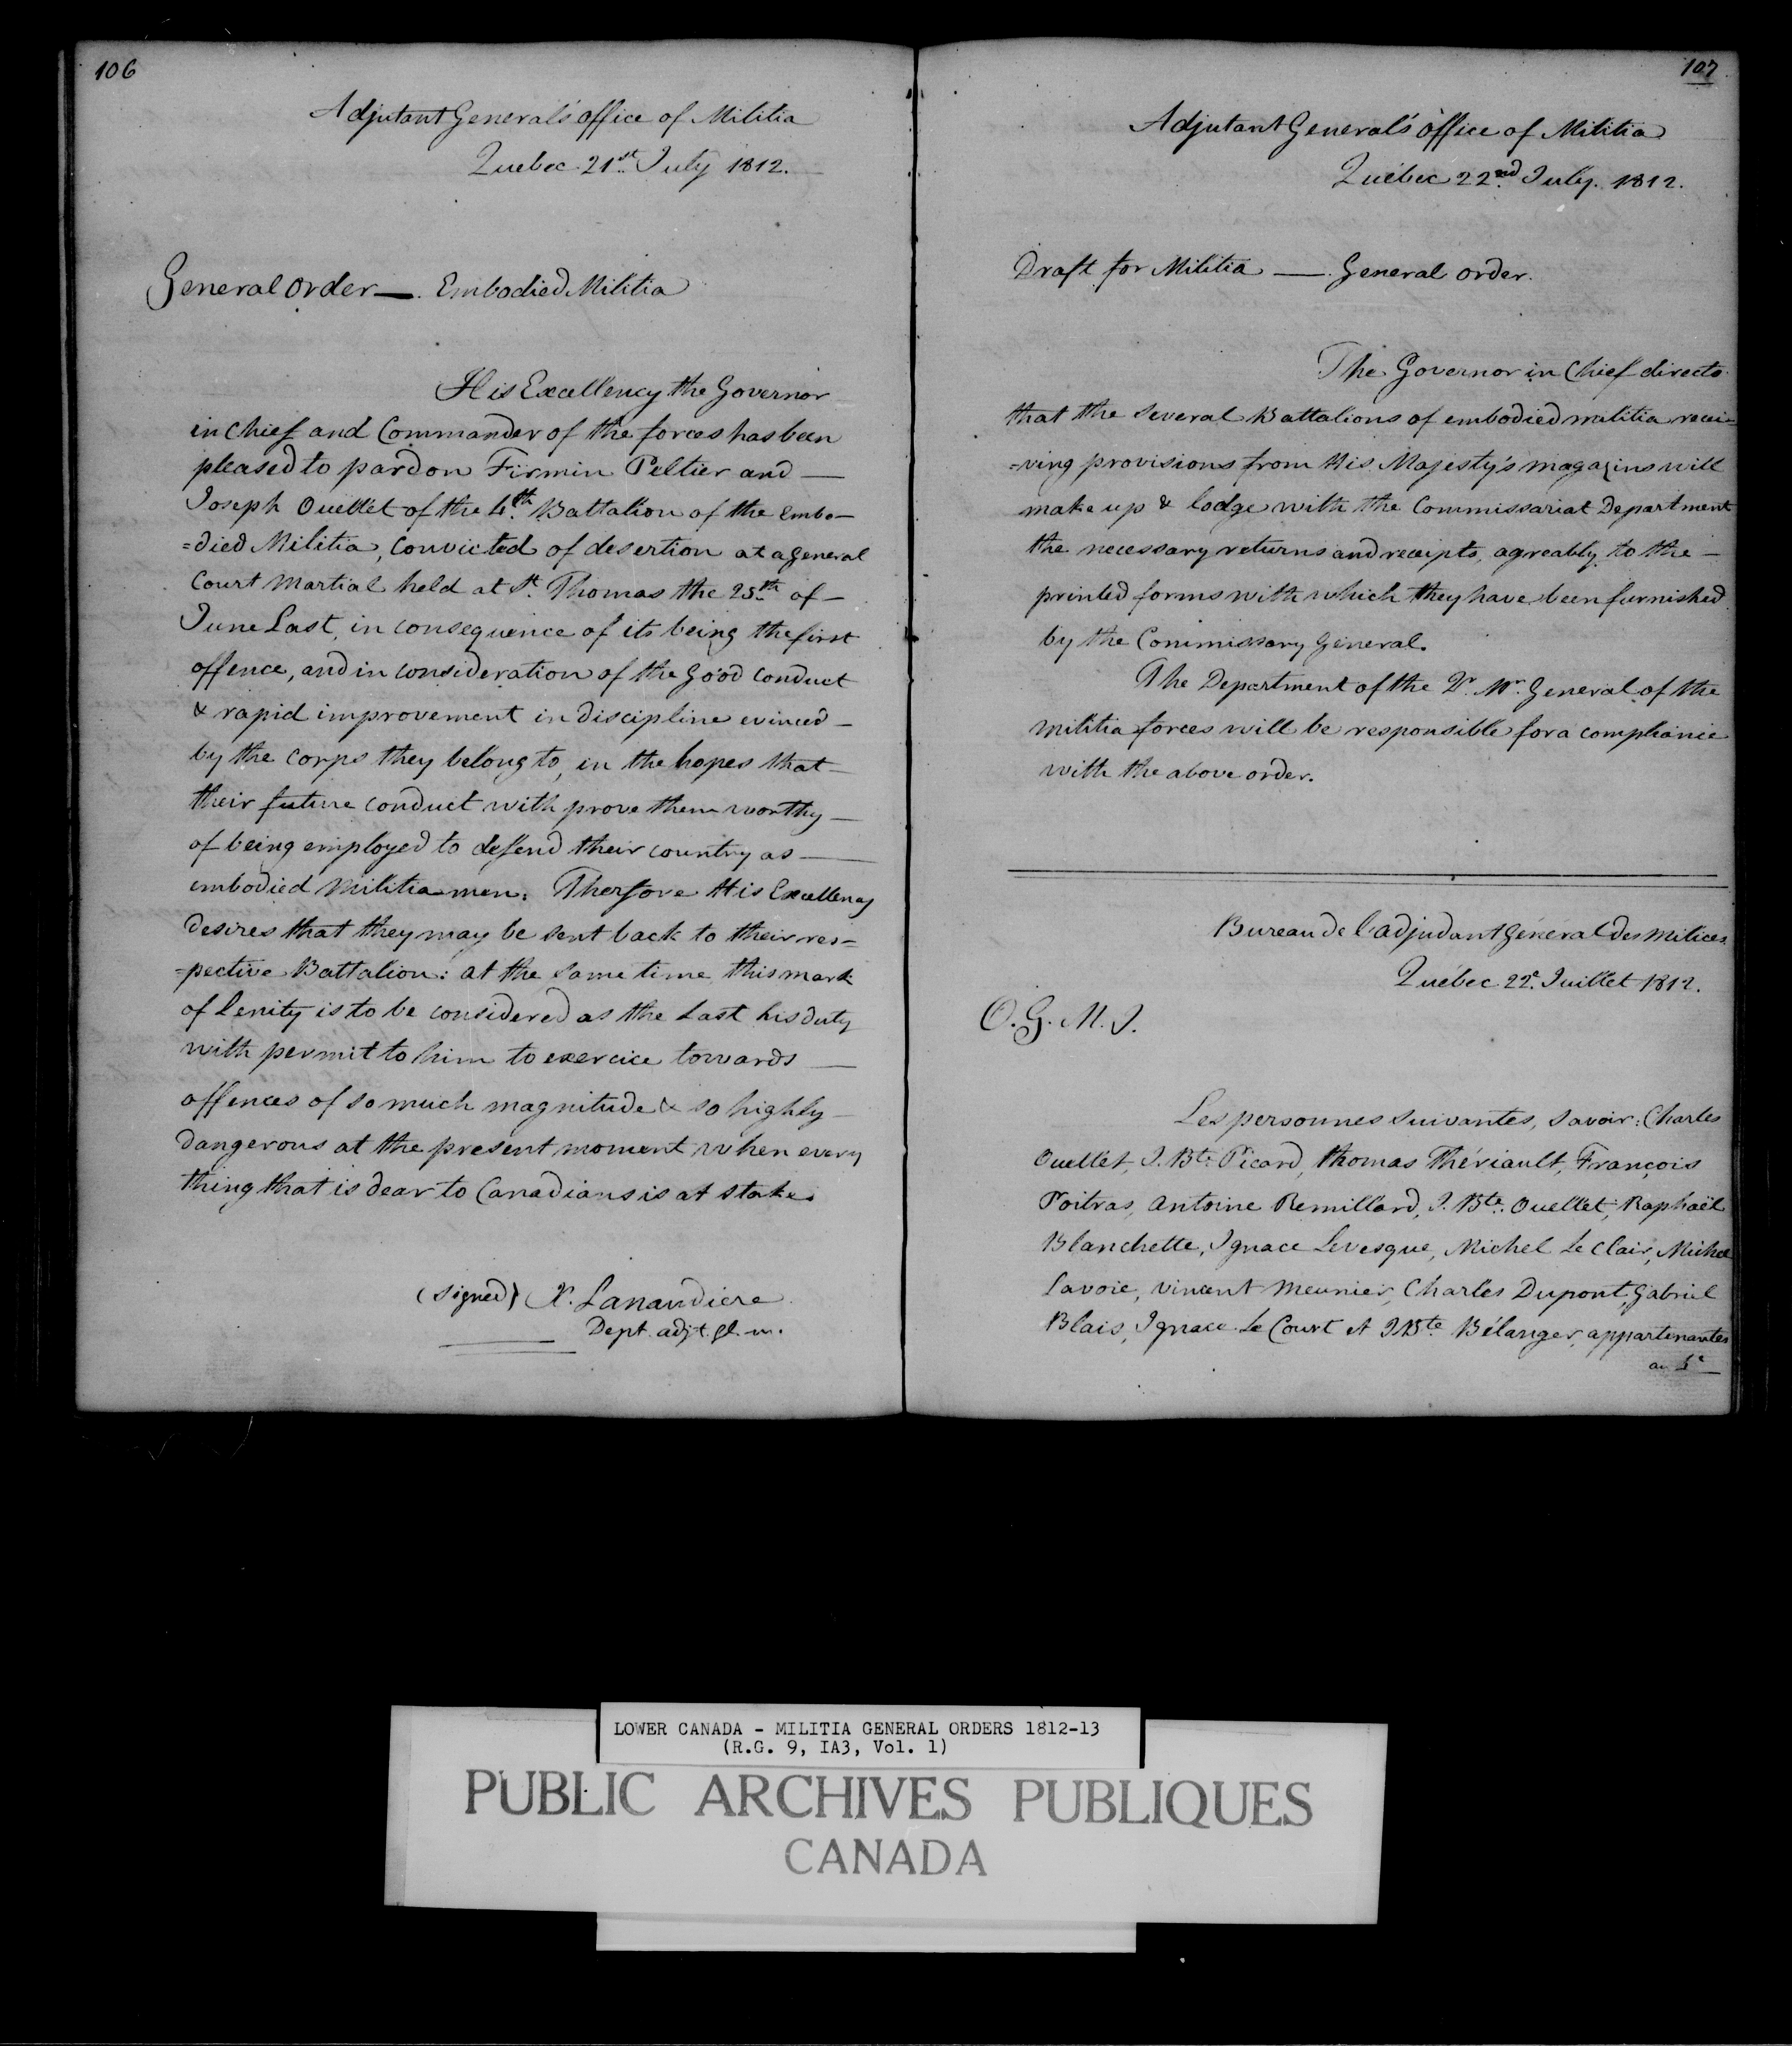 106
Adjutant General's office of Militia
Quebec 21st July 1812.
General order — Embodied Militia
His Excellency the Governor
in Chief and Commander of the forces has been
pleased to pardon Firmin Peltier and —
Joseph Ouellet of the 4th Battalion of the embo-
=died Militia, convicted of desertion at a general
Court Martial held at St. Thomas the 25th of —
June Last, in consequence of its being the first
offence, and in consideration of the Good conduct
& rapid improvement in discipline evinced —
by the corps they belong to, in the hopes that —
their future conduct with prove them worthy —
of being employed to defend their country as —
embodied Militia men. Therfore His Excellency
desires that they may be sent back to their res=
=pective Battalion: at the same time this mark
of lenity is to be considered as the Last his duty
with permit to him to exercice towards —
offences of so much magnitude & so highly —
dangerous at the present moment when every
thing that is dear to Canadians is at stake.
(signed) X. Lanaudiere
Dept. adjt. gl. m.
107
Adjutant General's office of Militia
Québec 22nd July. 1812.
Draft for Militia — General order.
The Governor in Chief directs
that the several Battalions of embodied militia recei=
=ving provisions from His Majesty's magazins will
make up & lodge with the Commissariat Department
the necessary returns and receipts, agreably to the —
printed forms with which they have been furnished
by the Commissary General.
The Department of the Qr. Mr. General of the
militia forces will be responsible for a compliance
with the above order.
Bureau de l'adjudant Général des Milices.
Québec 22e. Juillet 1812.
O. G. M. I.
Les personnes suivantes, savoir: Charles
Ouellet, J. Bte. Picard, thomas Thériault, François
Poitras, Antoine Remillard, J. Bte. Ouellet, Raphaël
Blanchette, Ignace Levesque, Michel Le Clair, Michel
Lavoie, Vincent Meunier, Charles Dupont, Gabriel
Blais, Ignace Le Court et J Bte Bélanger, appartenantes
au
LOWER CANADA - MILITIA GENERAL ORDERS 1812-13
(R.G. 9, IA3, Vol. 1)
PUBLIC ARCHIVES PUBLIQUES
CANADA